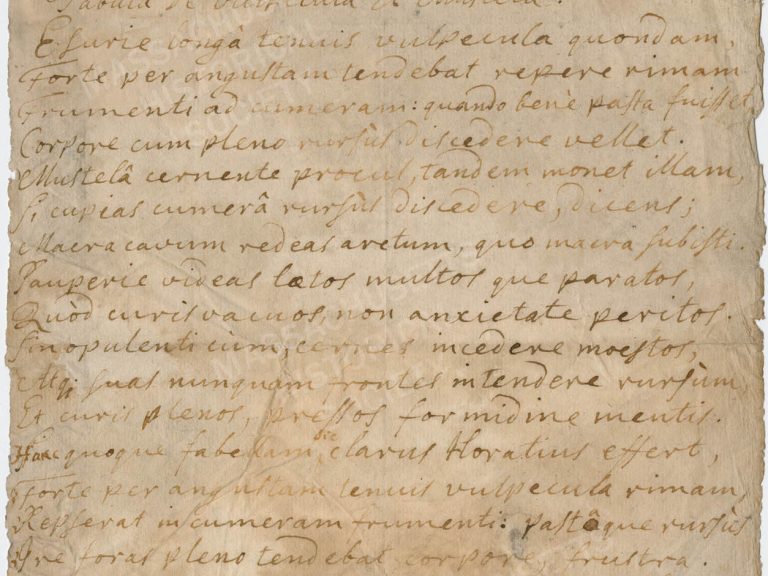 Fabula de Vulpecula et Mustela.
Esurie longâ tenuis vulpecula quondam,
Forte per angustam tendebat repere rimam
Frumenti ad cumeram: quando benè pasta fuisset,
Corpore cum pleno rursùs discedere vellet.
Mustelâ cernente procul, tandem monet illam,
Si cupias cumerâ rursùs discedere, dicens;
Macra cavum redeas arctum, quo macra subisti.
Pauperie videas lœtos multos que paratos,
Quòd curis vacuos, non anxietate peritos.
Sin opulenti cùm, cernes incedere moestos,
Atq; suas nunquam frontes intendere rursùm,
Et curis plenos, pressos formidine mentis.
Hanc quoque fabellam hic clarus Horatius effert,
Forte per angustam tenuis vulpecula rimam,
Repserat in cumeram frumenti: pastâque rursùs
Ire foras pleno tendebat corpore, frustra.